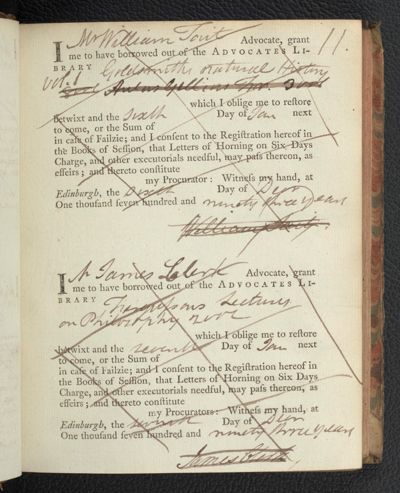 11.
I Mr William Tait Advocate, grant
me to have borrowed out of the ADVOCATES LI-
BRARY Goldsmiths natural History
vol. 1
which I oblige me to restore
betwixt and the sixth Day of Jan next
to come, or the Sum of
in case of Failzie; and I consent to the Registration hereof in
the Books of Session, that Letters of Horning on Six Days
Charge, and other executorials needful, may pass thereon, as
effeirs; and thereto constitute
my Procurator: Witness my hand, at
Edinburgh, the sixth Day of Decr
One thousand seven hundred and ninety three years
William Tait.
I Mr James Clerk Advocate, grant
me to have borrowed out of the ADVOCATES LI-
BRARY Fergusons Lectures
on Philosophy
which I oblige me to restore
betwixt and the seventh Day of Jan next
to come, or the Sum of
in case of Failzie; and I consent to the Registration hereof in
the Books of Session, that Letters of Horning on Six Days
Charge, and other executorials needful, may pass thereon, as
effeirs; and thereto constitute
my Procurators: Witness my hand, at
Edinburgh, the seventh Day of Decr
One thousand seven hundred and ninety three years
James Clerk